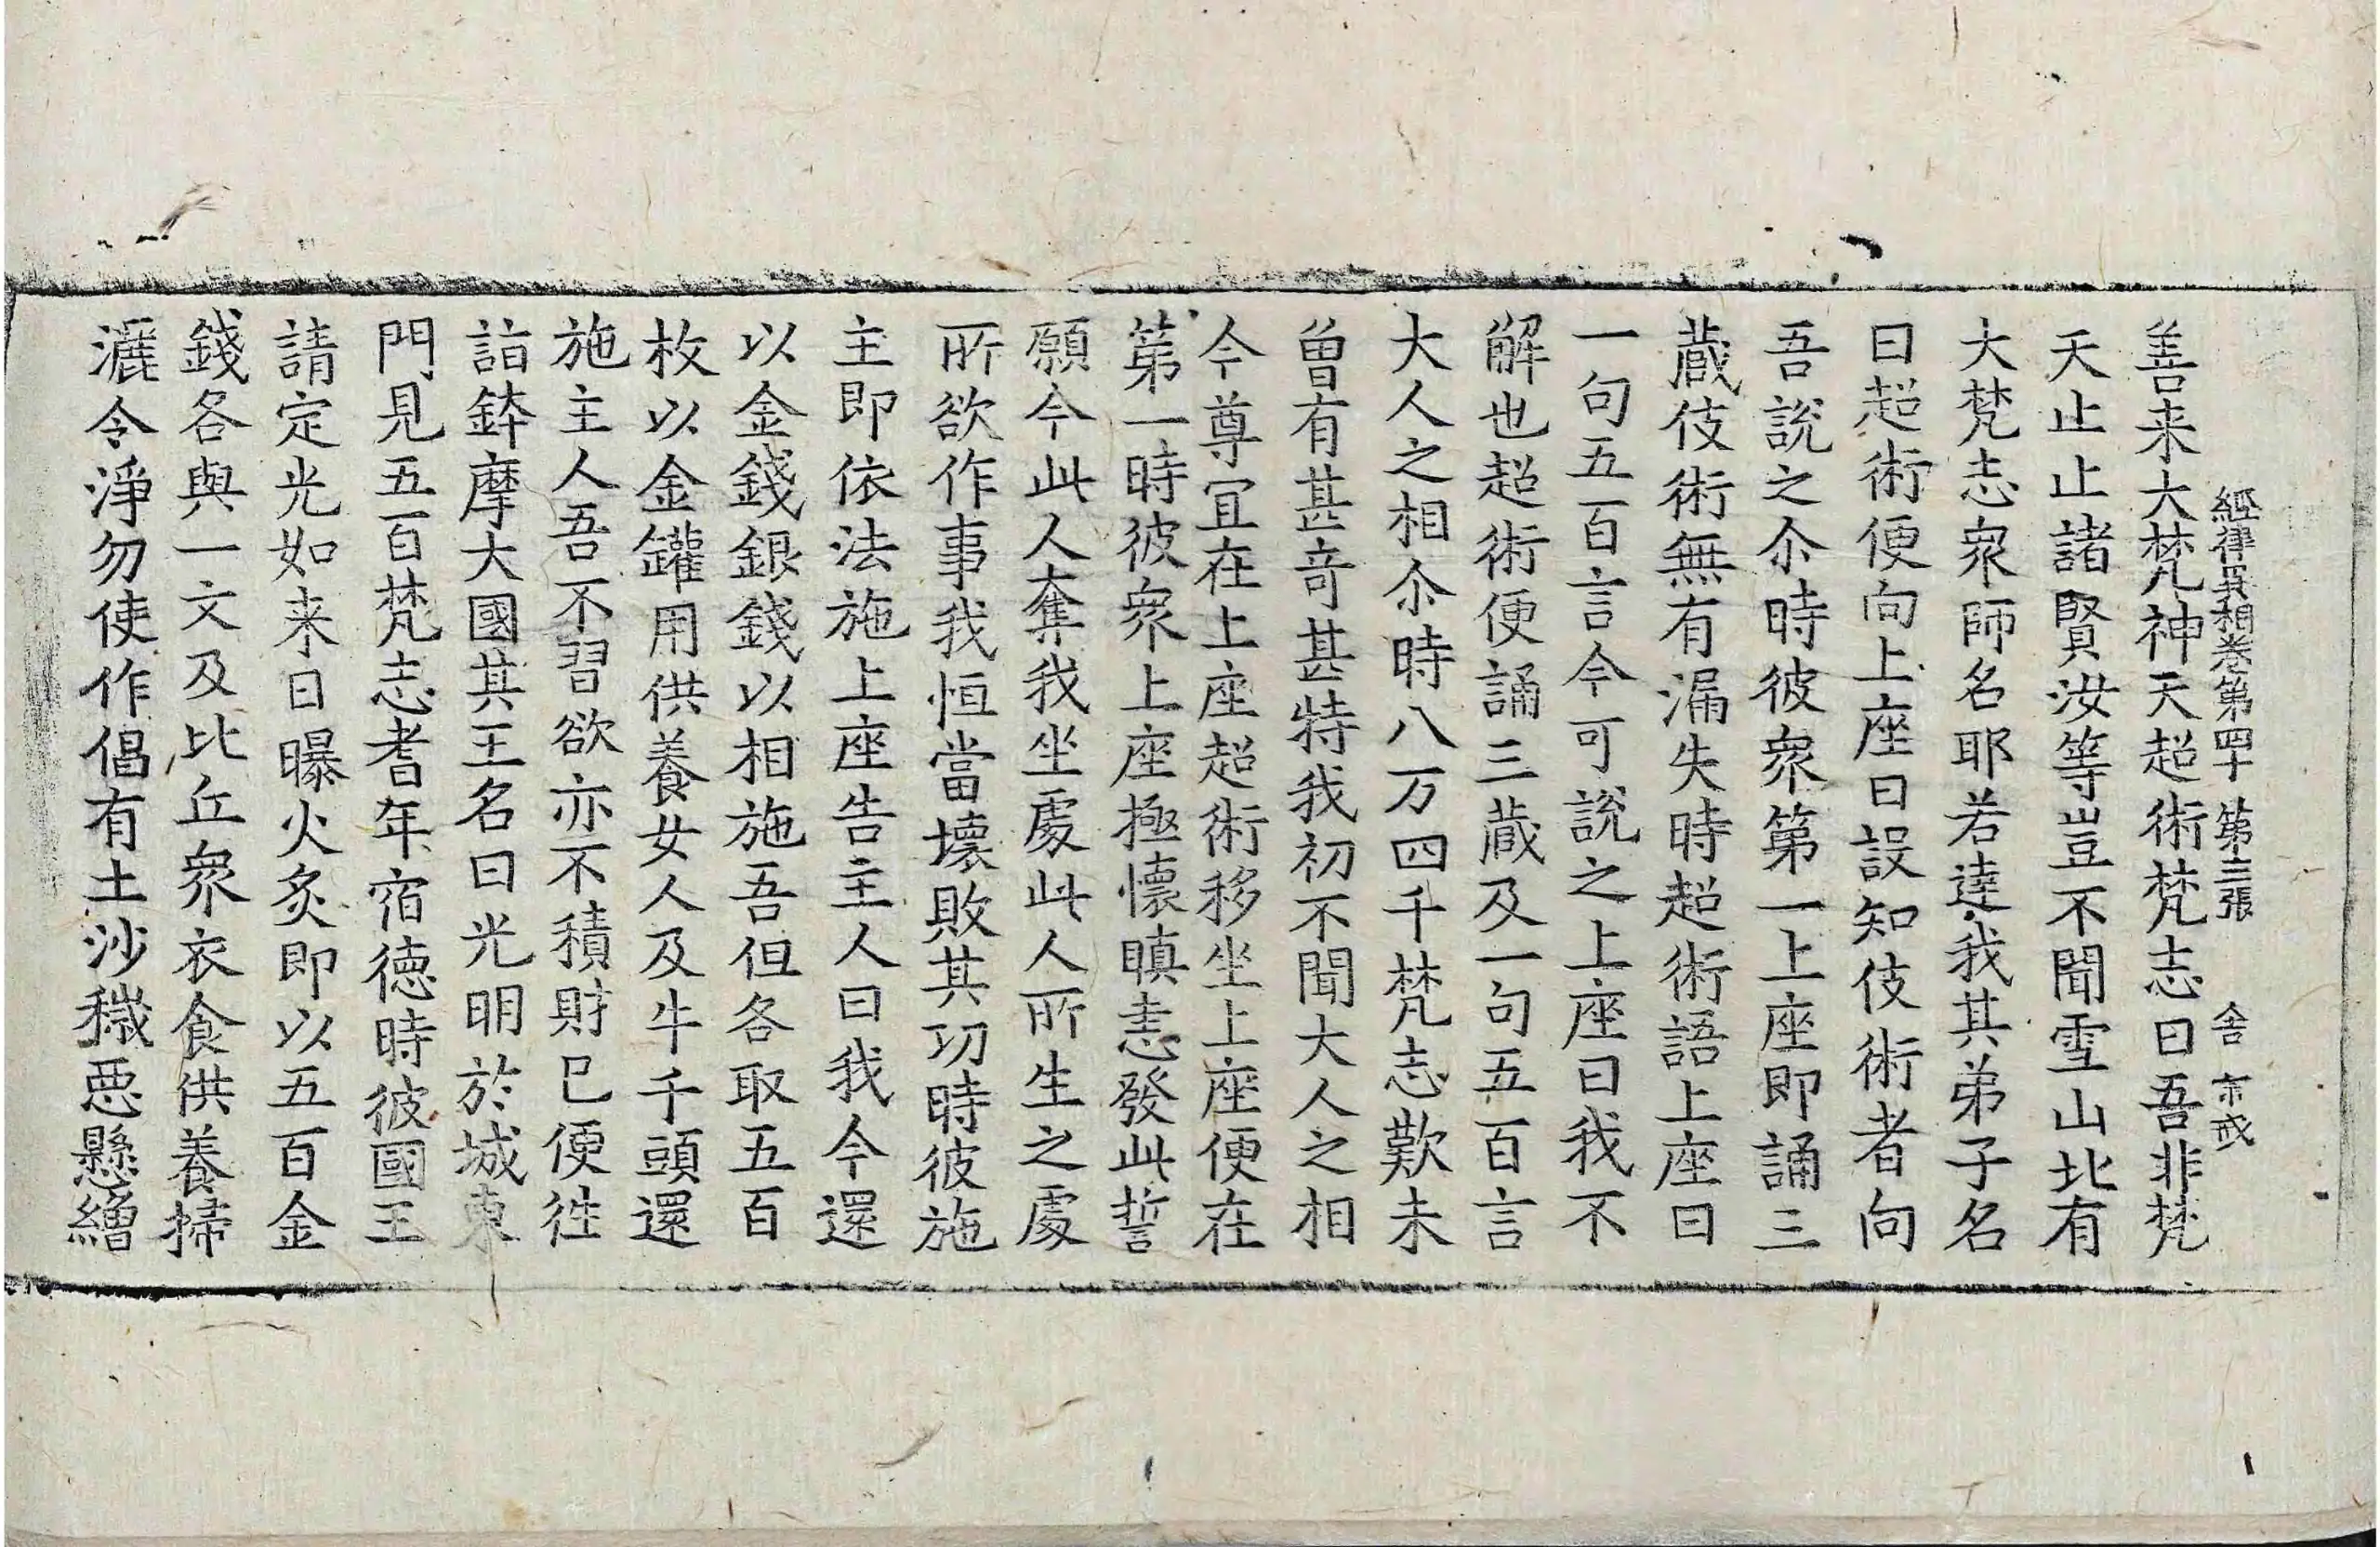 經律異相卷第四十 第三張 舍 亦戒
善来大梵神天超術梵志曰吾非梵
天止止諸賢汝等豈不聞雪山北有
大梵志衆師名耶若達我其弟子名
曰超術便向上座曰設知伎術者向
吾説之尒時彼衆第一上座即誦三
蔵伎術無有漏失時超術語上座曰
一句五百言今可説之上座曰我不
解也超術便誦三蔵及一句五百言
大人之相尒時八万四千梵志歎未
曽有甚奇甚特我初不聞大人之相
今尊宜在上座超術移坐上座便在
第一時彼衆上座極懷瞋恚發此誓
願今此人奪我坐處此人所生之處
所欲作事我恒當壊敗其功時彼施
主即依法施上座告主人曰我今還
以金錢銀錢以相施吾但各取五百
枚以金罐用供養女人及牛千頭還
施主人吾不習欲亦不積財已便徃
詣鉢摩大國其王名曰光明於城東
門見五百梵志耆年宿徳時彼國王
請定光如来日曝火炙即以五百金
錢各與一文及比丘衆衣食供養掃
灑令淨勿使作倡有土沙穢惡懸繒